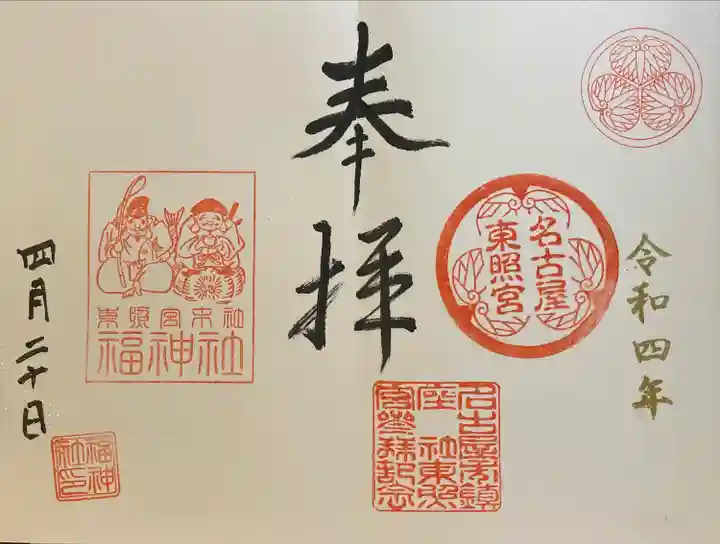 令和四年
名古屋
東照宮
奉拝
名古屋東鎮
座 社東照
宮参拝記念
東照宮末社
福神社
四月二十日
福神
社印